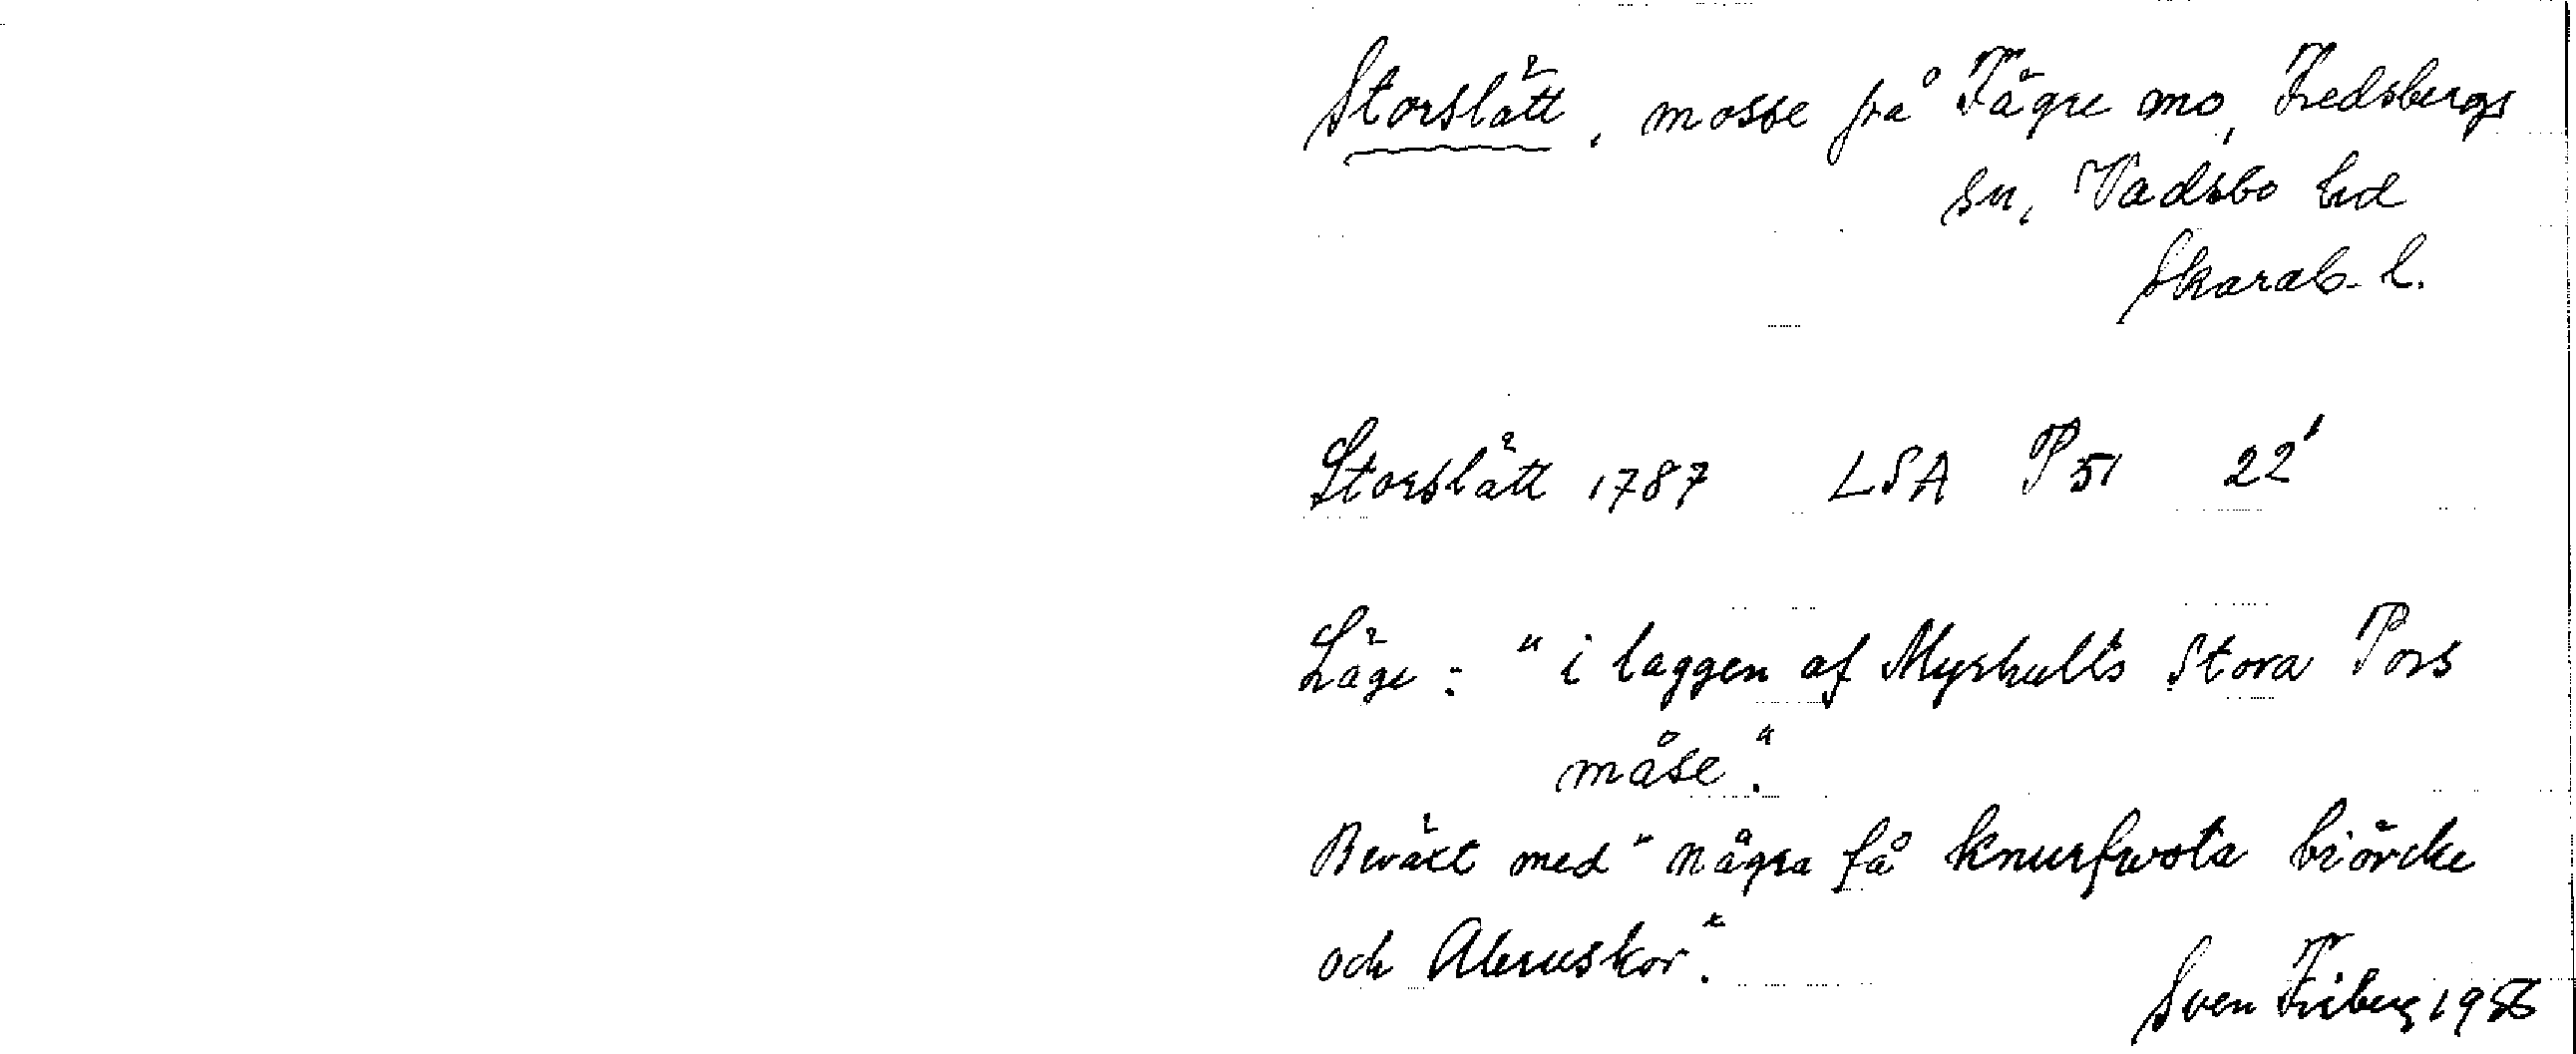 Storslätt, mosse på Fägre mo, Fredsbergs
sn, Vadsbo hd
Skarab. l.
Storslätt 1787 LSA P51 22'
Läge: "i laggen af Myrhults Stora Pors
måse".
Beväxt med "några få knurfwota biörcke
och Aleruskor".
Sven Friberg